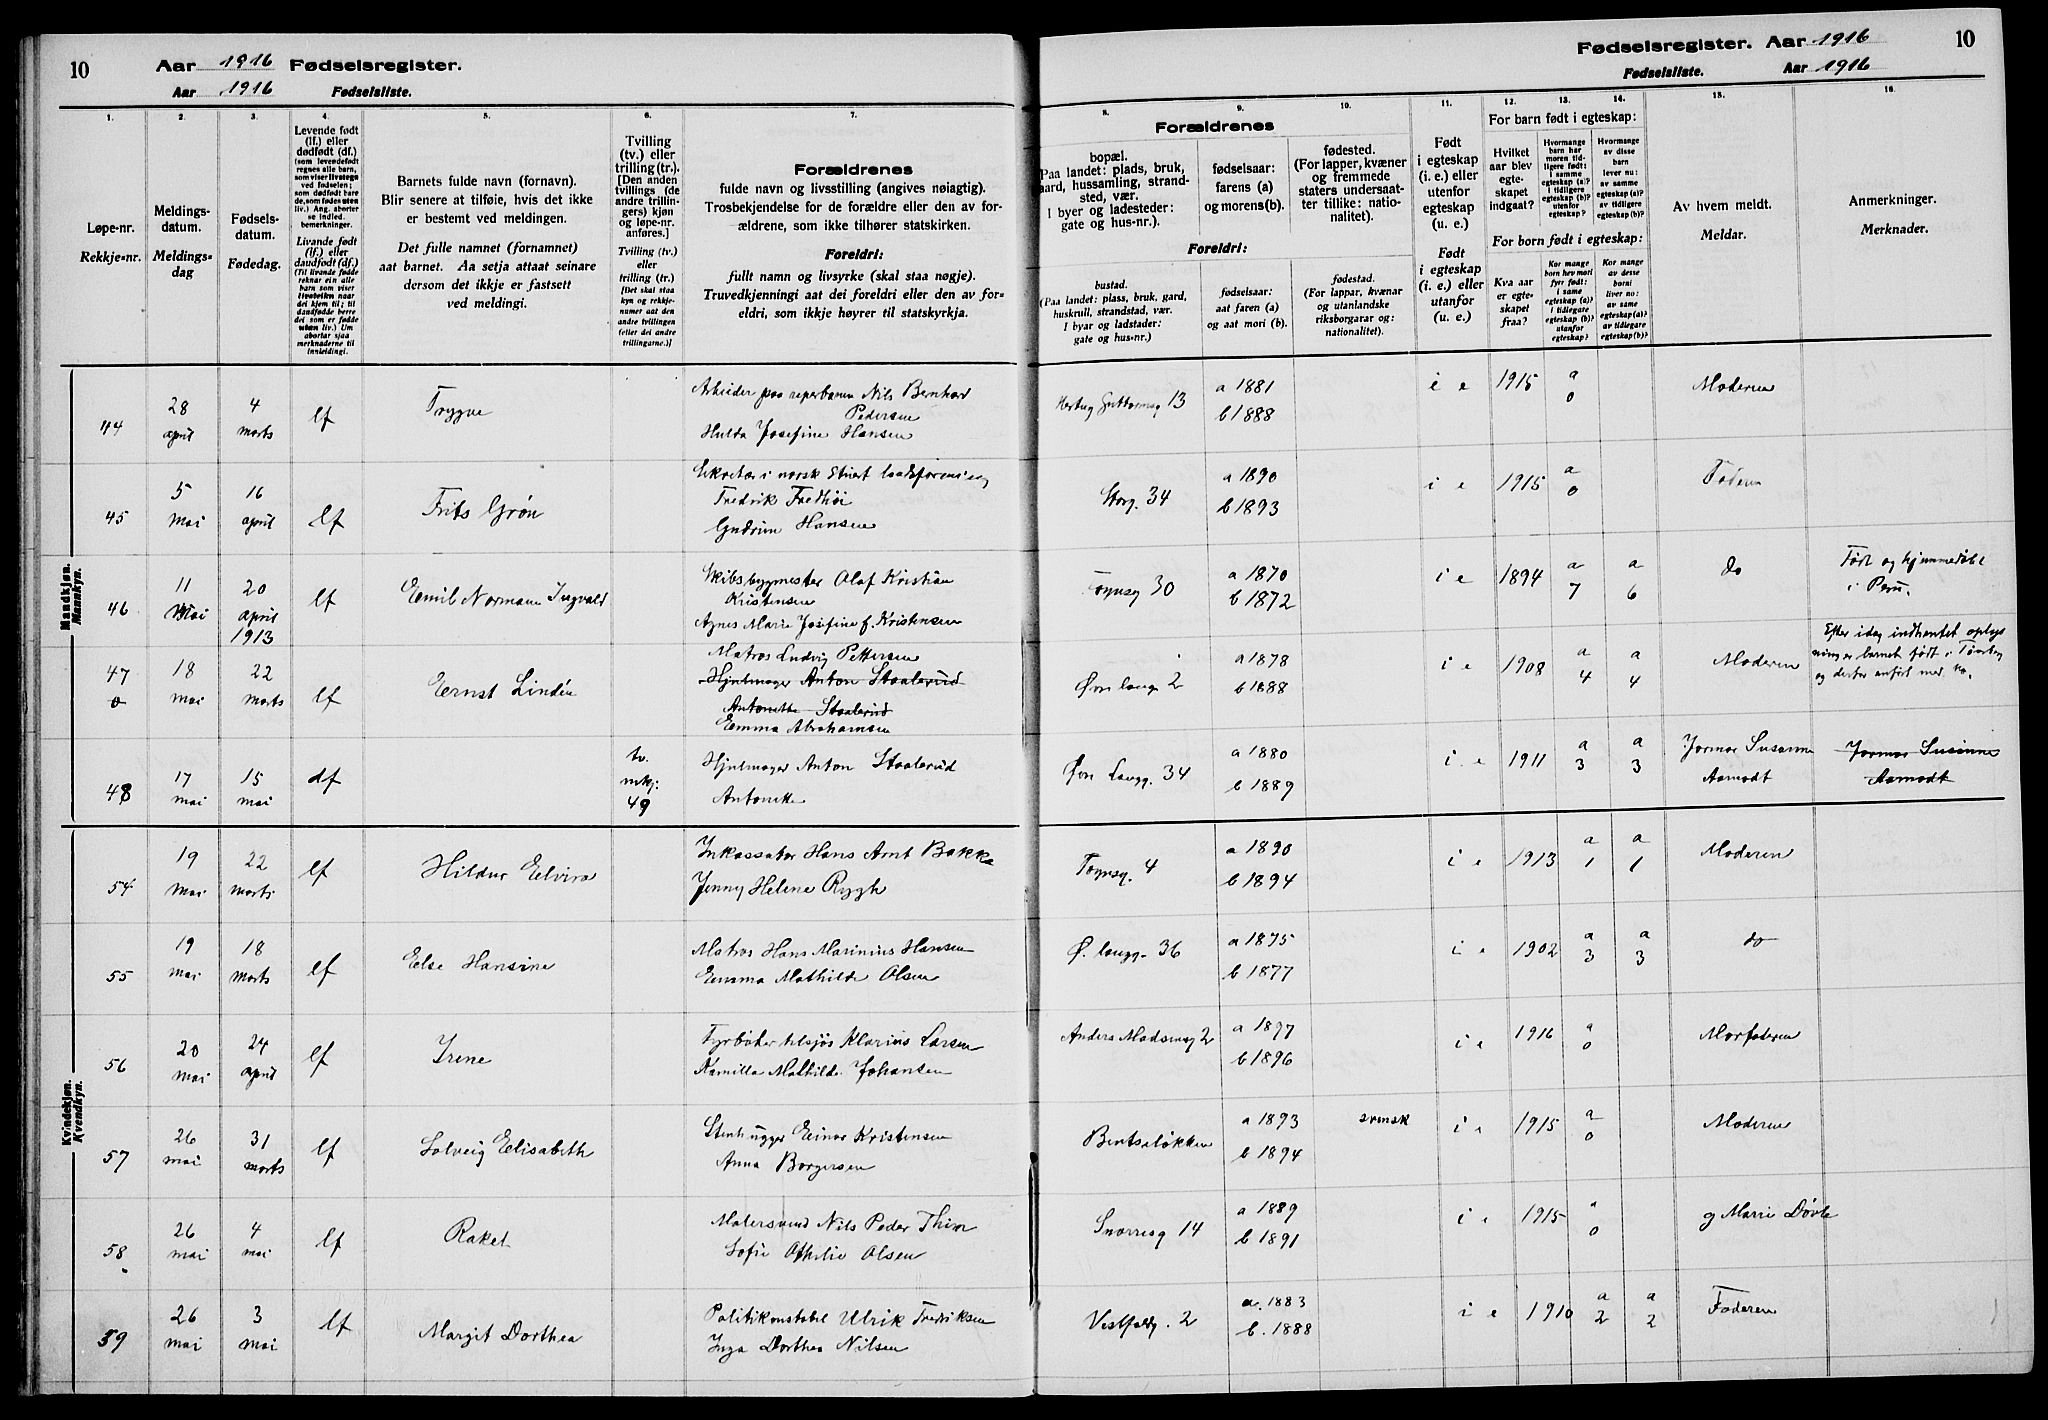 10
Aar 1916 Fødselsregister.
Aar 1916 Fødselsliste.
1.
2.
3.
4.
5.
6.
7.
Løpe-nr.
Rekkje-nr.
Meldings-
datum.
Meldings-
dag
Fødsels-
datum.
Fødedag.
Levende født
(lf.) eller
dødfødt (df.)
(som levendefødt
regnes alle barn,
som viser livstegn
ved fødselen;
som dødfødt bare
de, som fødes uten
liv.) Ang. aborter
se indled.
bemerkninger.
Livande født
(lf.) eller
daudfødt (df.)
(Til livande fødde
reknar ein alle
barn som viser
livsteikn naar
dei kjem til; til
daudfødde berre
dei som er fødde
utan liv.) Um
abortar sjaa
merknaderne til
innleidingi.
Barnets fulde navn (fornavn).
Blir senere at tilføie, hvis det ikke
er bestemt ved meldingen.
Det fulle namnet (fornamnet)
aat barnet. Aa setja attaat seinare
dersom det ikkje er fastsett
ved meldingi.
Tvilling
(tv.) eller
trilling (tr.).
[Den anden
tvillings (de
andre trillin-
gers) kjøn
og løpe-nr.
anføres.]
Tvilling (tv.)
eller
trilling (tr.)
[Det skal staa
kyn og rekkje-
numer aat den
andre tvillingen
(eller dei andre
trillingarne.)]
Forældrenes
fulde navn og livsstilling (angives nøiagtig).
Trosbekjendelse for de forældre eller den av for-
ældrene, som ikke tilhører statskirken.
Foreldri:
fullt namn og livsyrke (skal staa nøgje).
Truvedkjenningi aat dei foreldri eller den av for-
eldri, som ikkje høyrer til statskyrkja.
Mandkjøn.
Mannkyn.
44
28
april
4
marts
lf
Trygve
Arbeider paa reperbanen Nils Bernhard
Pedersen
Hulda Josefine Hansen
45
5
mai
16
april
lf
Frits Grøn
Sekretær i norsk
Fredrik Fredhøi
Gudrun Hansen
46
11
mai
20
april
1913
lf
Emil Norman Ingvald
Skibsbygmester Olaf Kristian
Kristensen
Agnes Marie Josefine f. Kristensen
47
18
mai
22
marts
lf
Ernst Lindén
Matros Ludvig Pettersen
Hjulmager Anton Staalerud
Antonette Staalerud
Emma Abrahamsen
48
17
mai
15
mai
df
tv.
mkj:
49
Hjulmager Anton Staalerud
Antonette
Kvindekjøn.
Kvendkyn.
54
19
mai
22
marts
lf
Hildur Elvira
Inkassator Hans Arnt Bakke
Jenny Helene Rygh
55
19
mai
18
marts
lf
Else Hansine
Matros Hans Marinius Hansen
Emma Mathilde Olsen
56
20
mai
24
april
lf
Irene
Fyrbøter tilsjøs Klarius Larsen
Kamilla Mathilde Johansen
57
26
mai
31
marts
lf
Solveig Elisabeth
Stenhugger Einar Kristensen
Anna Borgersen
58
26
mai
4
mai
lf
Rakel
Malersvend Nils Peder Thim
Sofie Othilie Olsen
59
26
mai
3
mai
lf
Margit Dorthea
Politikonstabel Ulrik Fredriksen
Inga Dorthea Nilsen
Fødselsregister. Aar 1916
10
Fødselsliste. Aar 1916
8.
9.
10.
11.
12.
13.
14.
15.
16.
Forældrenes
bopæl.
(Paa landet: plads, bruk,
gaard, hussamling, strand-
sted, vær.
I byer og ladesteder:
gate og hus-nr.).
fødselsaar:
farens (a)
og morens(b).
fødested.
(For lapper, kvæner
og fremmede
staters undersaat-
ter tillike: natio-
nalitet).
Foreldri:
bustad.
(Paa landet: plass, bruk, gard,
huskrull, strandstad, vær.
I byar og ladstader:
gate og hus-nr.)
fødselsaar:
aat faren (a)
og aat mori (b).
fødestad.
(For lappar, kvænar
og utanlandske
riksborgarar og:
nationalitet).
Født
i egteskap
(i. e.) eller
utenfor
egteskap
(u. e.)
Født
i egteskap
(i. e.) eller
utanfor
(u. e.)
For barn født i egteskap:
Hvilket
aar blev
egte-
skapet
indgaat?
Hvormange
barn har
moren tid-
ligere født:
i samme
egteskap (a)?
i tidligere
egteskap (b)?
utenfor
egteskap?
Hvormange
av disse
barn
lever nu:
av samme
egteskap (a)?
av tidligere
egteskap (b)?
For born født i egteskap:
Kva aar
er egte-
skapet
fraa?
Kor mange
born hev mori
fyrr født:
i same
egteskap (a)?
i tidlegare
egteskap (b)?
utanfor
egteskap?
Kor mange
av desse
borni
liver no:
av same
egteskap (a)?
av tidlegare
egteskap (b)?
Av hvem meldt.
Meldar.
Anmerkninger.
Merknader.
Hertug Guttormsg 13
a 1881
b 1888
i e
1915
a
0
Moderen
Storg. 34
a 1890
b 1893
i e
1915
a
0
Faderen
Tognsg 30
a 1870
b 1872
i e
1894
a
7
a
6
do
Født og hjemmedøbt
i Peru.
Øvre Langg. 2
a 1878
b 1888
i e
1908
a
4
a
4
Moderen
Efter idag indhentet oplys
ning er barnet født i Tønsberg
og derfor anført med No.
Øvre Langg. 34
a 1880
b 1889
i e
1911
a
3
a
3
Jormor Susanne
Aamodt
Jormor Susanne
Aamodt
Tognsg. 4
a 1890
b 1894
i e
1913
a
1
a
1
Moderen
Ø. langg. 36
a 1875
b 1877
i e
1902
a
3
a
3
do
Anders Madsensg 2
a 1897
b 1896
i e
1916
a
0
Morfaderen
Bentsaløkken
a 1893
b 1894
svensk
i e
1915
a
0
Moderen
Snorresg 14
a 1889
b 1891
i e
1915
a
0
g Marie Døvle
Vestfoldg. 2
a. 1883
b. 1888
i e
1910
a
2
a
2
Faderen